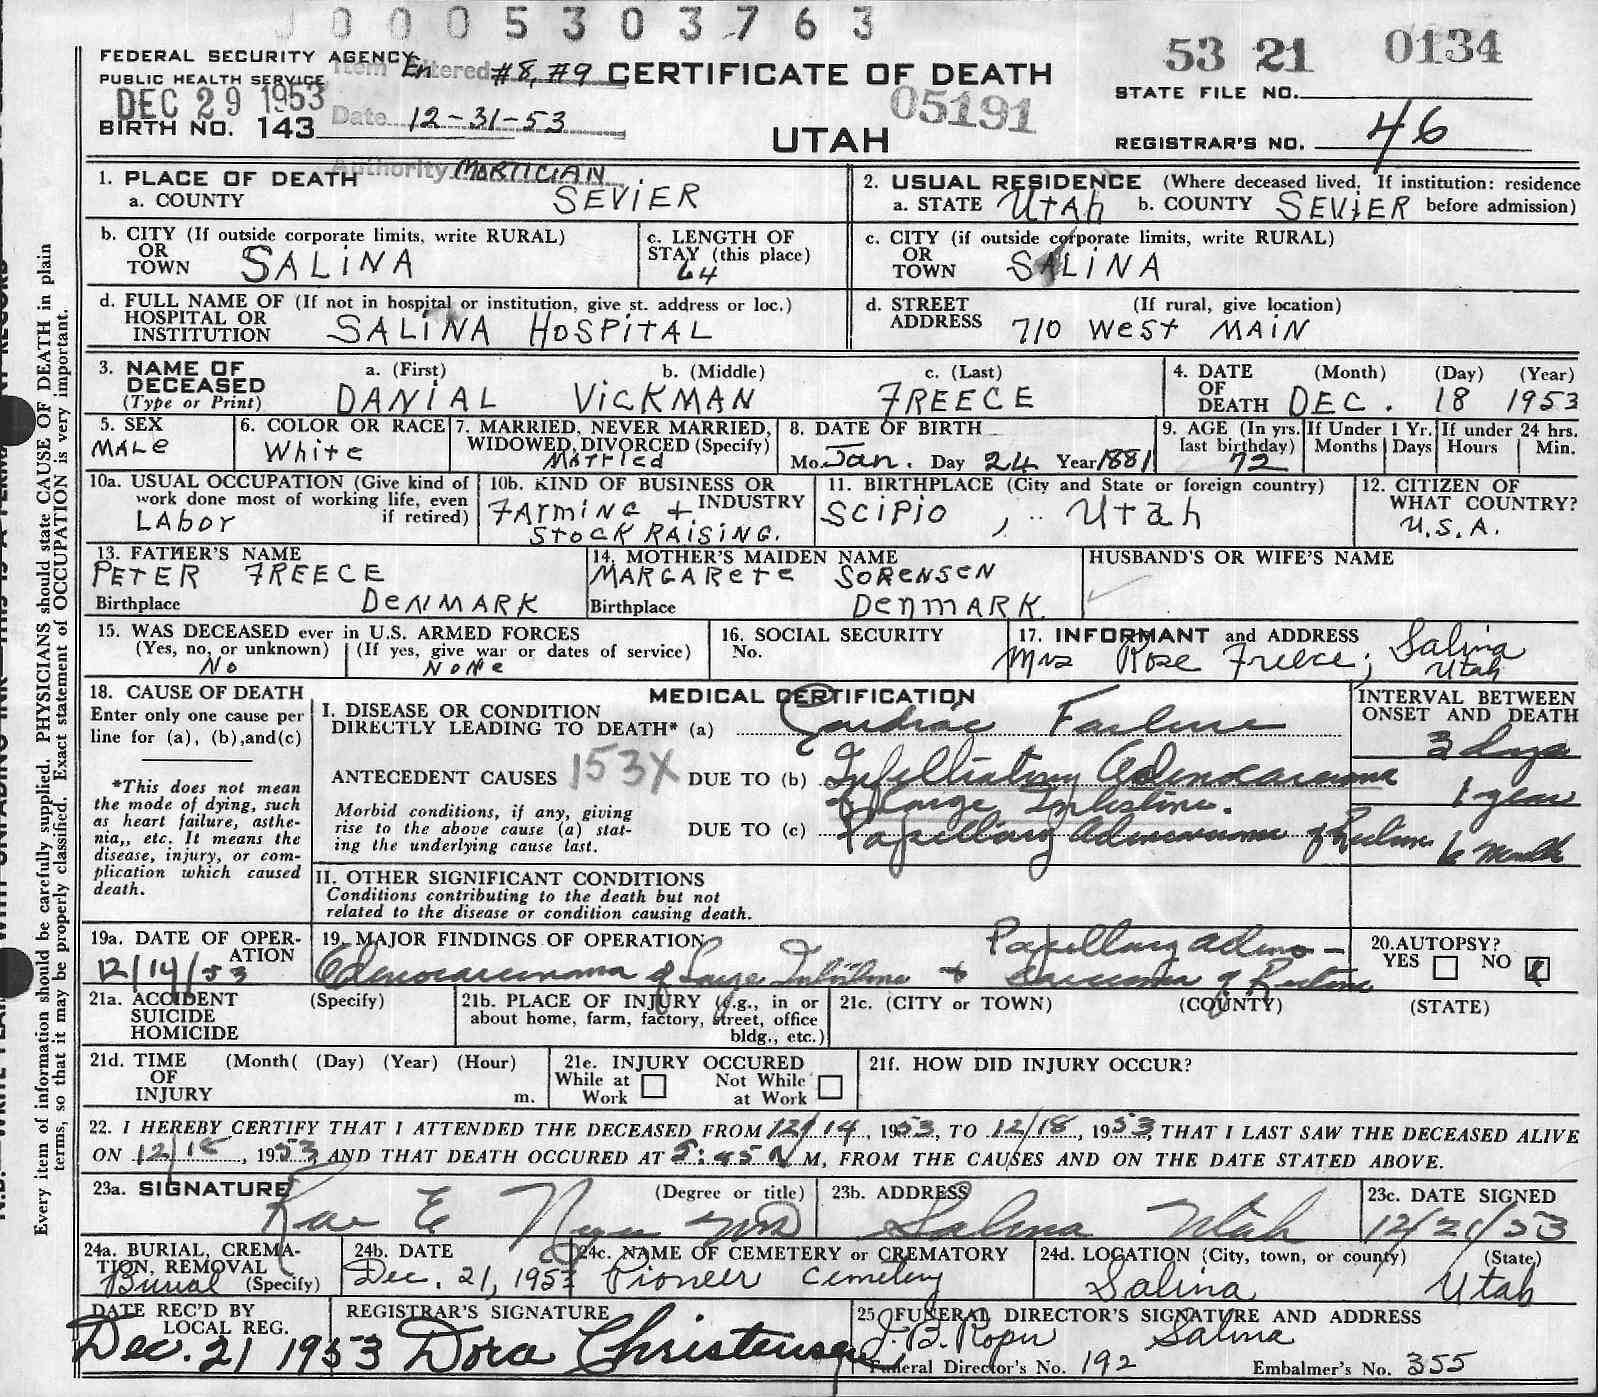 0005303763
53 21 0134
FEDERAL SECURITY AGENCY
PUBLIC HEALTH SERVICE
Item Entered #8, #9
CERTIFICATE OF DEATH
DEC 29 1953
Date 12-31-53
05191
STATE FILE NO.
BIRTH NO. 143
UTAH
REGISTRAR'S NO. 46
Authority MORTICIAN
1. PLACE OF DEATH
a. COUNTY SEVIER
2. USUAL RESIDENCE (Where deceased lived. If institution: residence
a. STATE UTAH b. COUNTY SEVIER before admission)
b. CITY (If outside corporate limits, write RURAL)
OR
TOWN SALINA
c. LENGTH OF
STAY (this place)
64
c. CITY (if outside corporate limits, write RURAL)
OR
TOWN SALINA
d. FULL NAME OF (If not in hospital or institution, give st. address or loc.)
HOSPITAL OR
INSTITUTION SALINA HOSPITAL
d. STREET (If rural, give location)
ADDRESS 710 West MAIN
3. NAME OF
DECEASED
(Type or Print)
a. (First) b. (Middle) c. (Last)
DANIAL VICKMAN FREECE
4. DATE (Month) (Day) (Year)
OF
DEATH DEC. 18 1953
5. SEX
MALE
6. COLOR OR RACE
White
7. MARRIED, NEVER MARRIED,
WIDOWED, DIVORCED (Specify)
Married
8. DATE OF BIRTH
Mo. Jan. Day 24 Year 1881
9. AGE (In yrs.
last birthday)
72
If Under 1 Yr.
Months Days
If under 24 hrs.
Hours Min.
10a. USUAL OCCUPATION (Give kind of
work done most of working life, even
if retired)
LABOR
10b. KIND OF BUSINESS OR
INDUSTRY
FARMING +
STOCK RAISING.
11. BIRTHPLACE (City and State or foreign country)
SCIPIO, Utah
12. CITIZEN OF
WHAT COUNTRY?
U.S.A.
13. FATHER'S NAME
PETER FREECE
Birthplace DENMARK
14. MOTHER'S MAIDEN NAME
MARGARETE SORENSEN
Birthplace DENMARK
HUSBAND'S OR WIFE'S NAME
15. WAS DECEASED ever in U.S. ARMED FORCES
(Yes, no, or unknown) (If yes, give war or dates of service)
No None
16. SOCIAL SECURITY
No.
17. INFORMANT and ADDRESS
Mrs Rose Freece, Salina
Utah
18. CAUSE OF DEATH
Enter only one cause per
line for (a), (b), and (c)
*This does not mean
the mode of dying, such
as heart failure, asthe-
nia,, etc. It means the
disease, injury, or com-
plication which caused
death.
MEDICAL CERTIFICATION
I. DISEASE OR CONDITION
DIRECTLY LEADING TO DEATH* (a) Cardiac Failure
ANTECEDENT CAUSES 153X DUE TO (b) Infiltrating Adenocarcinoma
of Large Intestine.
Morbid conditions, if any, giving
rise to the above cause (a) stat-
ing the underlying cause last.
DUE TO (c) Papillary Adenocarcinoma of Rectum
INTERVAL BETWEEN
ONSET AND DEATH
3 days
1 year
6 Months
II. OTHER SIGNIFICANT CONDITIONS
Conditions contributing to the death but not
related to the disease or condition causing death.
19a. DATE OF OPER-
ATION
12/14/53
19. MAJOR FINDINGS OF OPERATION Papillary adeno-
Adenocarcinoma of Large Intestine + carcinoma of Rectum
20. AUTOPSY?
YES NO
21a. ACCIDENT (Specify)
SUICIDE
HOMICIDE
21b. PLACE OF INJURY (e.g., in or
about home, farm, factory, street, office
bldg., etc.)
21c. (CITY or TOWN) (COUNTY) (STATE)
21d. TIME (Month( (Day) (Year) (Hour)
OF
INJURY m.
21e. INJURY OCCURED
While at Not While
Work at Work
21f. HOW DID INJURY OCCUR?
22. I HEREBY CERTIFY THAT I ATTENDED THE DECEASED FROM 12/14, 1953, TO 12/18, 1953, THAT I LAST SAW THE DECEASED ALIVE
ON 12/18, 1953 AND THAT DEATH OCCURED AT 5:45 M, FROM THE CAUSES AND ON THE DATE STATED ABOVE.
23a. SIGNATURE (Degree or title)
Rae E MD
23b. ADDRESS
Salina Utah
23c. DATE SIGNED
12/21/53
24a. BURIAL, CREMA-
TION, REMOVAL
Burial (Specify)
24b. DATE
Dec. 21, 1953
24c. NAME OF CEMETERY or CREMATORY
Pioneer Cemetery
24d. LOCATION (City, town, or county) (State)
Salina Utah
DATE REC'D BY
LOCAL REG.
Dec. 21 1953
REGISTRAR'S SIGNATURE
Dora Christensen
25 FUNERAL DIRECTOR'S SIGNATURE AND ADDRESS
J. B. Roper Salina
Funeral Director's No. 192 Embalmer's No. 355
Every item of information should be carefully supplied. PHYSICIANS should state CAUSE OF DEATH in plain
terms, so that it may be properly classified. Exact statement of OCCUPATION is very important.